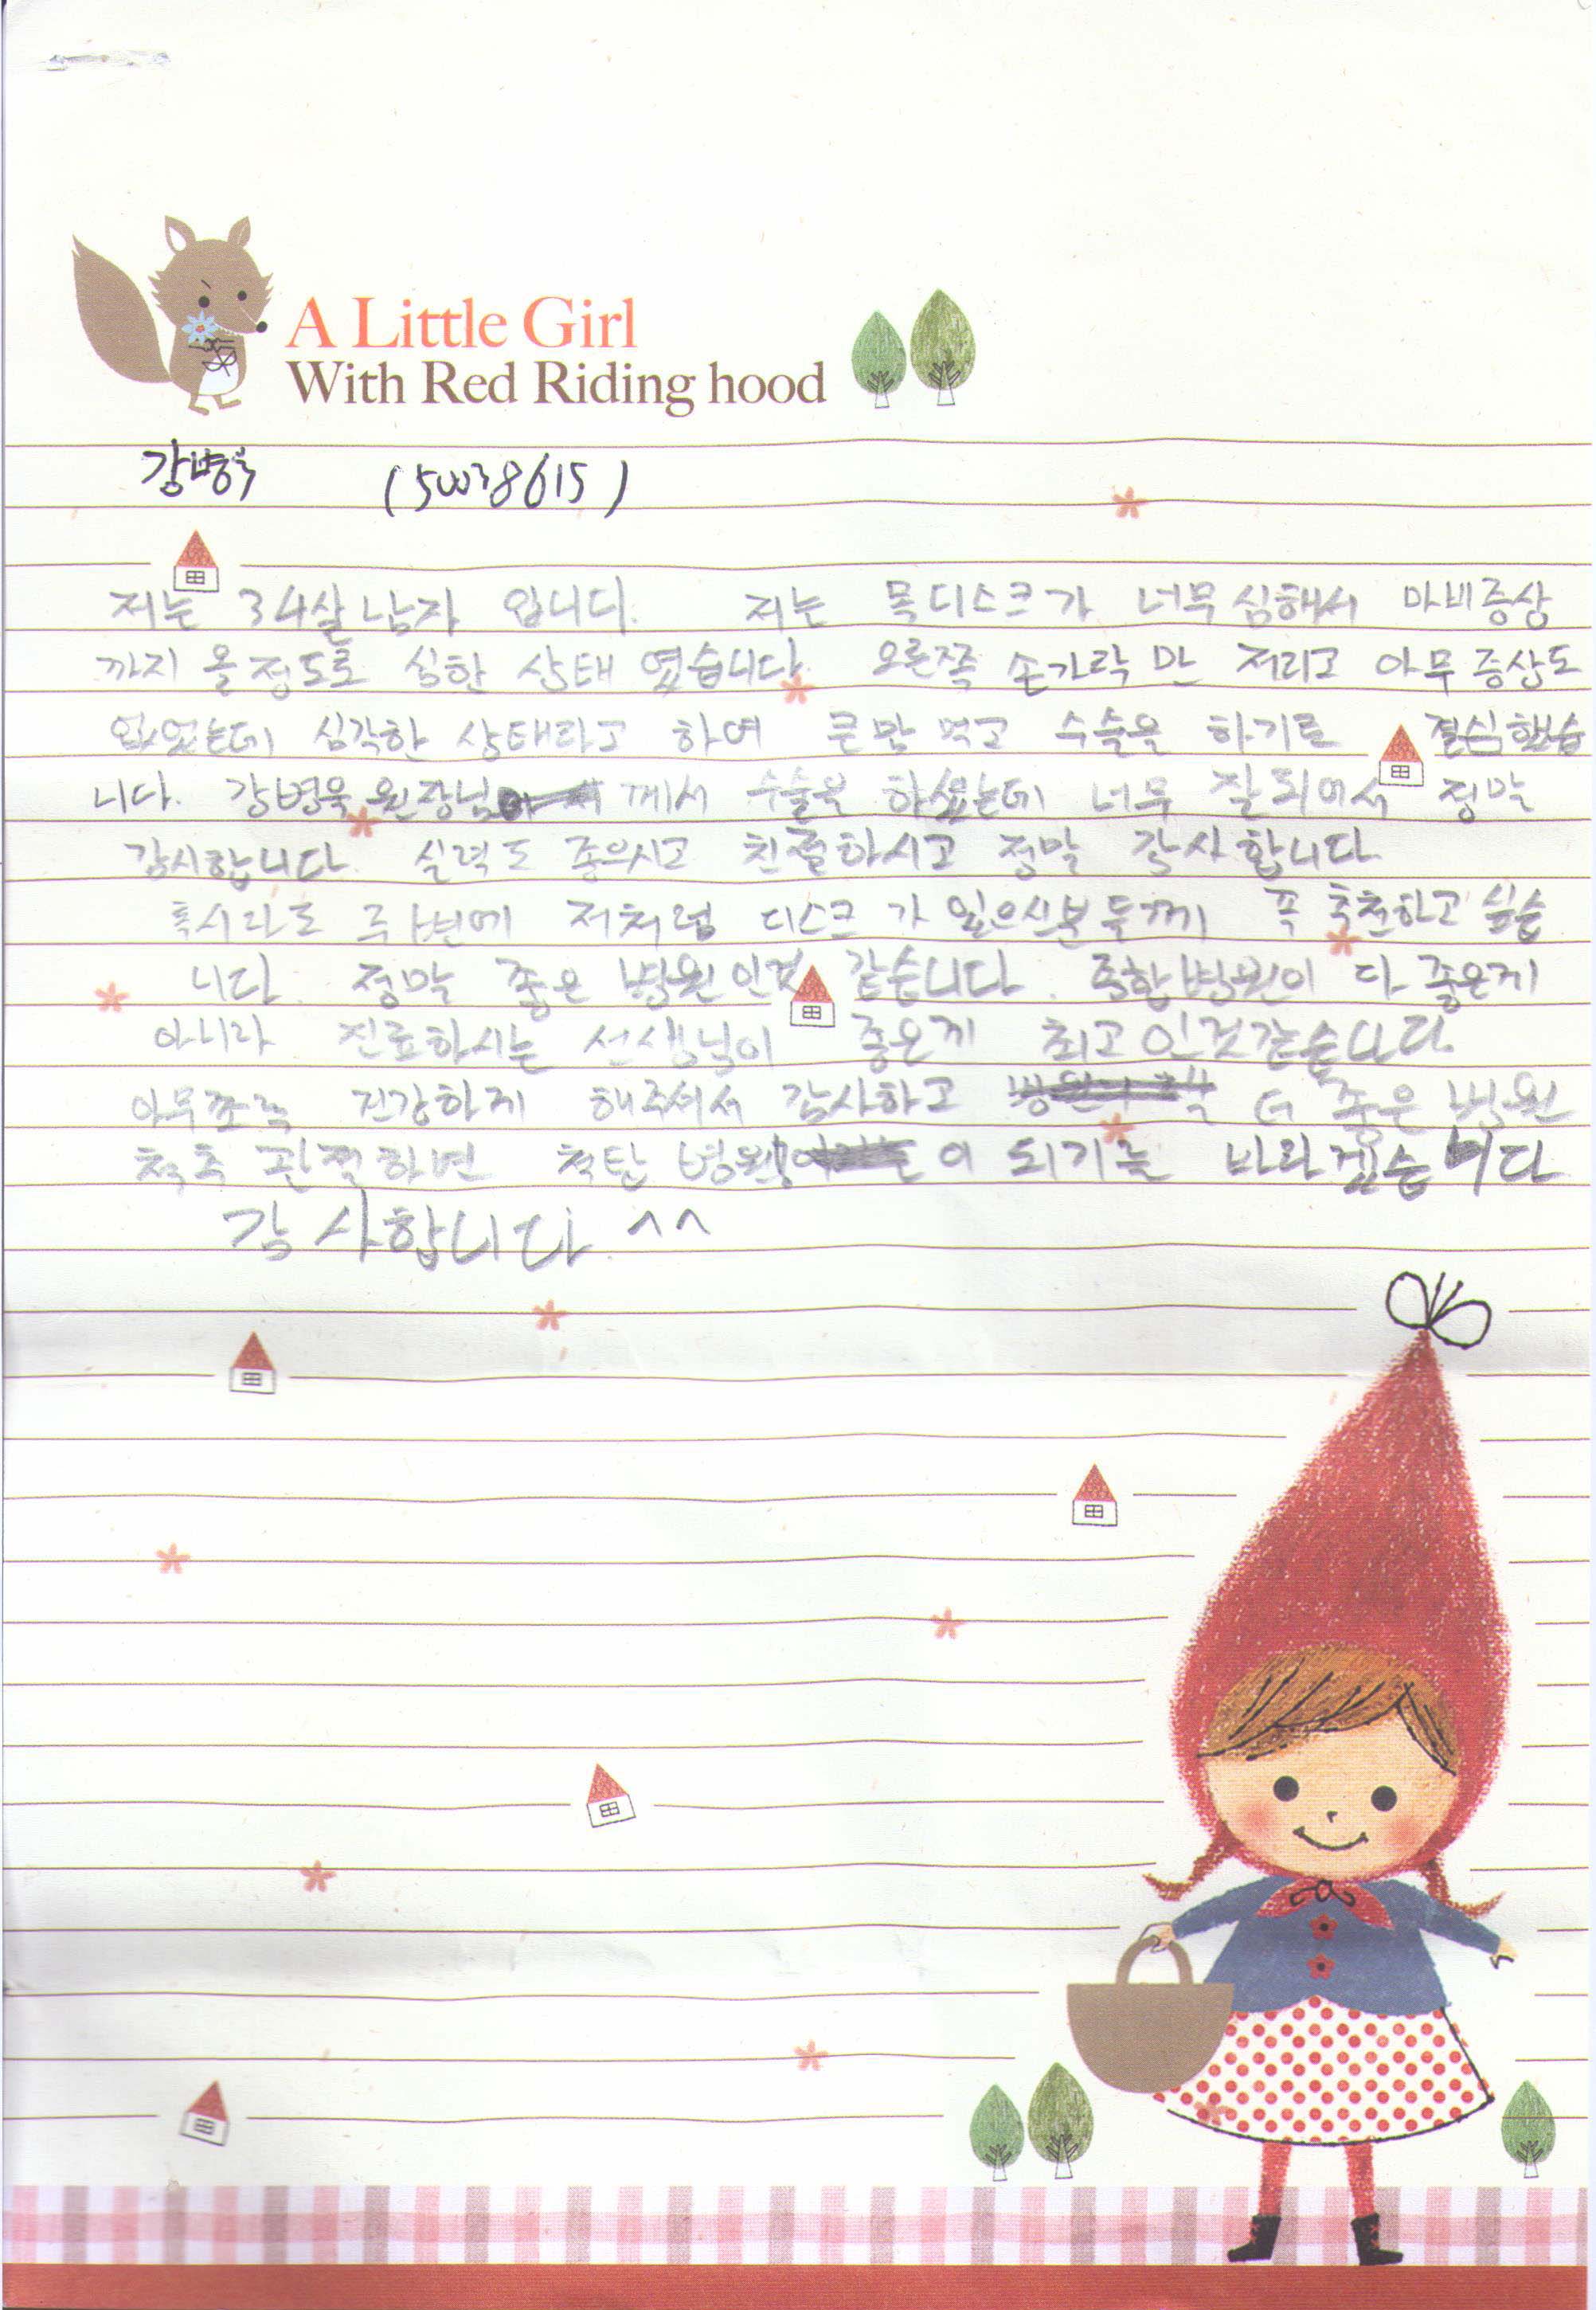 A Little Girl
With Red Riding hood
강병욱 (50038615)
저는 34살 남자 입니다. 저는 목디스크가 너무 심해서 마비증상
까지 올정도로 심한 상태 였습니다. 오른쪽 손가락 만 저리고 아무 증상도
없었는데 심각한 상태라고 하여 큰맘 먹고 수술을 하기로 결심했습
니다. 강병욱 원장님 께서 수술을 하셨는데 너무 잘되어서 정말
감사합니다. 실력도 좋으시고 친절하시고 정말 감사합니다
혹시라도 주변에 저처럼 디스크 가 있으신분들께 꼭 추천하고 싶습
니다. 정말 좋은 병원인것 같습니다. 종합병원이 다 좋은게
아니라 진료하시는 선생님이 좋은게 최고인것같습니다
아무쪼록 건강하게 해주셔서 감사하고 더 좋은 병원
척추 관절하면 척탄 병원 이 되기를 바라겠습니다
감사합니다. ^^